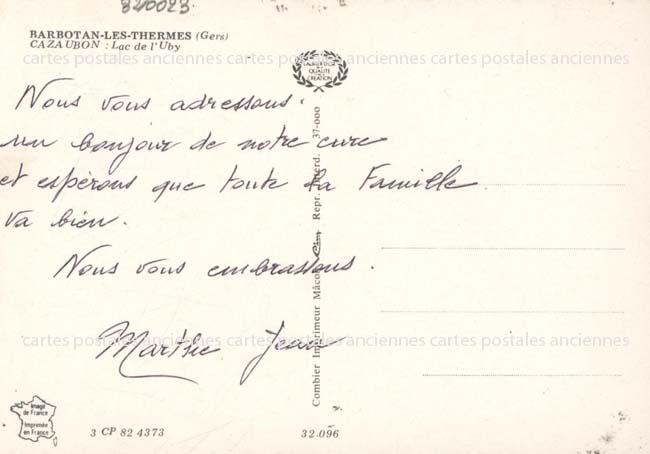 320023
BARBOTAN-LES-THERMES (Gers)
CAZAUBON : Lac de l'Uby
cartes postales anciennes cartes postales anciennes cartes postales anciennes
LAURIER D'OR
QUALITÉ
CRÉATION
Nous vous adressons.
un bonjour de notre cure
et espérons que toute la Famille
va bien.
Nous vous embrassons.
Marthe Jean
cartes postales anciennes cartes postales anciennes cartes postales anciennes
Combier Imprimeur Mâcon Cim Repr. Interd. 37-000
Image
de France
Imprimée
en France
3 CP 82 4373
32.096